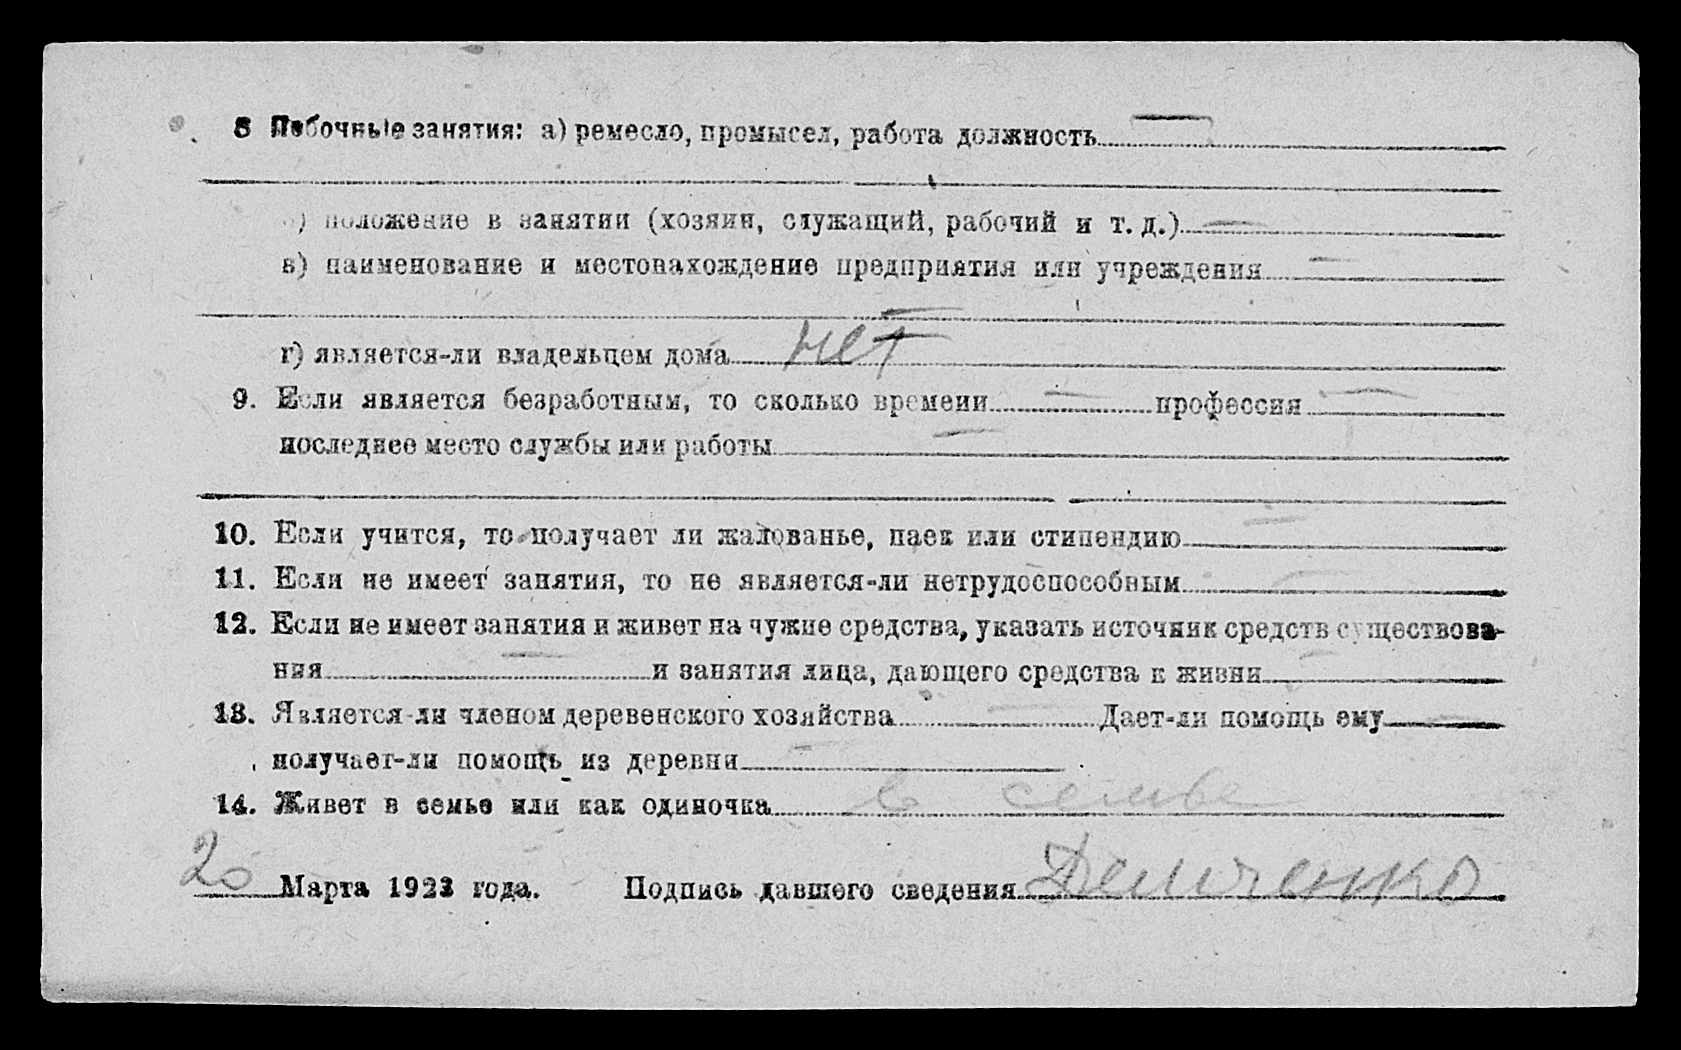 8 Побочные занятия: а) ремесло, промысел, работа должность
б) положение в занятии (хозяин, служащий, рабочий и т. д.)
в) наименование и местонахождение предприятия или учреждения
г) является-ли владельцем дома нет
9. Если является безработным, то сколько времени профессия
последнее место службы или работы
10. Если учится, то получает ли жалованье, паек или стипендию
11. Если не имеет занятия, то не является-ли нетрудоспособным
12. Если не имеет занятия и живет на чужие средства, указать источник средств существова-
ния и занятия лица, дающего средства к жизни
13. Является-ли членом деревенского хозяйства Дает-ли помощь ему
получает-ли помощь из деревни
14. Живет в семье или как одиночка в семье
20 Марта 1923 года. Подпись давшего сведения Демченко